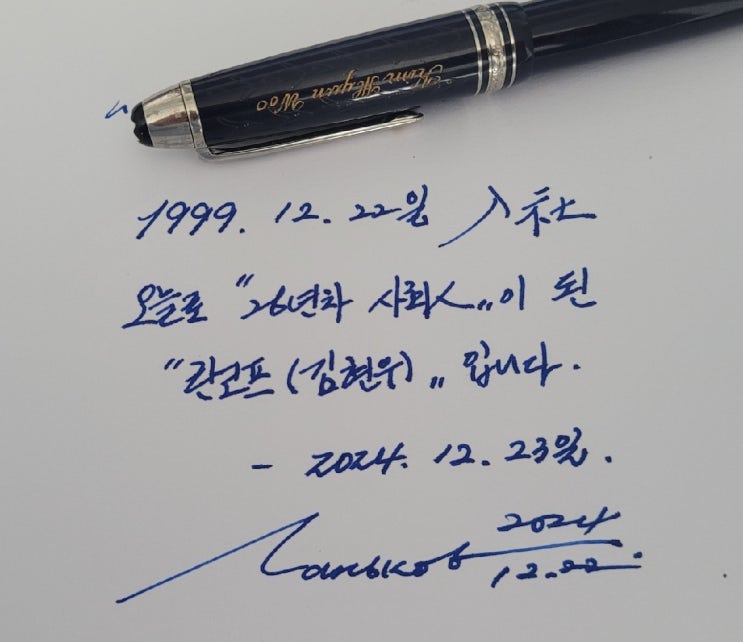 Kim Hyun Woo
1999. 12. 22일 入社
오늘로 "26년차 사회人"이 된
"란코프(김현우)" 입니다.
- 2024. 12. 23일.
2024
12.22.